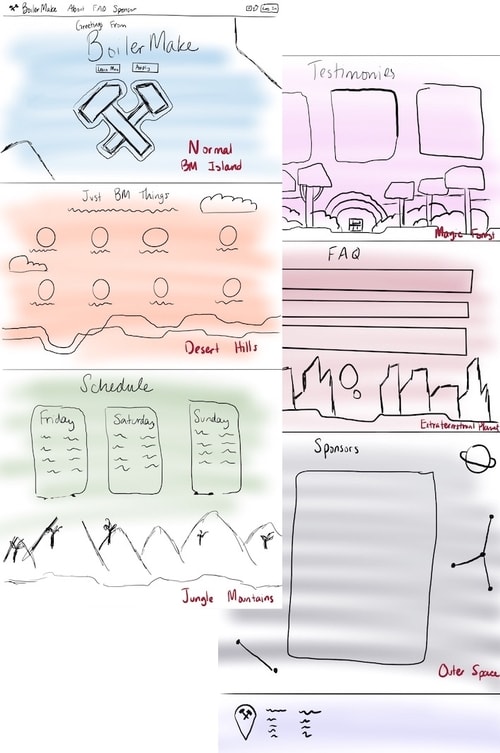 BoilerMake About FAQ Sponsor
Log In
Greetings From
BoilerMake
Learn More Apply
Normal
BM Island
Just BM Things
Desert Hills
Schedule
Friday Saturday Sunday
Jungle Mountains
Testimonies
Magic Forest
FAQ
Extraterrestrial Planet
Sponsors
Outer Space